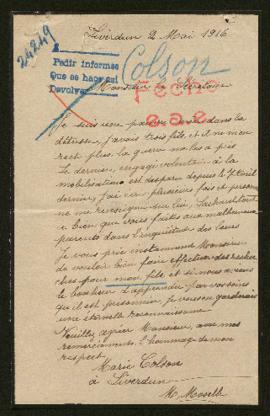 24249
Liverdun 2 Mai 1916
Pedir informes
Que se hace así
Devolver
Colson
Fecho
Monsieur le Secrétaire
Je suis une pauvre dans la
détresse, j'avais trois fils, et il ne me
reste plus, la guerre me les a pris
Le dernier, engagé volontaire à la
mobilisation est disparu depuis le
dernier, j'ai écrit plusieurs fois et personne
ne me renseigne sur lui,
le bien que vous faites aux malheureux
parents dans l'inquiétude des leurs
Je vous prie instamment Monsieur
de vouloir bien faire effectuer des recher
ches pour mon fils et si nous avions
le bonheur d'apprendre par vos soins
qu'il est prisonnier je vous en garderais
une éternelle reconnaissance
Veuillez agréer Monsieur, avec mes
remerciements l'hommage de mon
respect.
Marie Colson
à Liverdun
M. Moselle